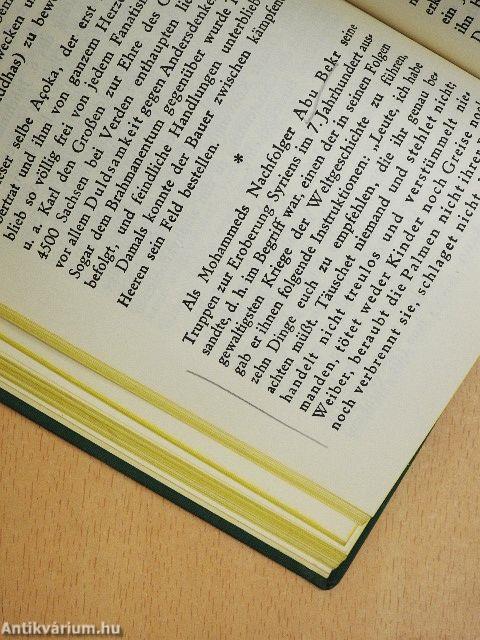 vrecken un
dhas) zu bewe
ser selbe Açoka, der erst
pertrat und ihm von ganzem Herze
blieb so völlig frei von jedem Fanatis
u. a. Karl den Großen zur Ehre des C
4500 Sachsen bei Verden enthaupten lie
vor allem Duldsamkeit gegen Andersdenke
Sogar dem Brahmanentum gegenüber wurde
befolgt, und feindliche Handlungen unterblieb
Damals konnte der Bauer zwischen kämpfen
Heeren sein Feld bestellen.
*
Als Mohammeds Nachfolger Abu Bekr seine
Truppen zur Eroberung Syriens im 7. Jahrhundert aus-
sandte, d. h. im Begriff war, einen der in seinen Folgen
gewaltigsten Kriege der Weltgeschichte zu führen,
gab er ihnen folgende Instruktionen: „Leute, ich habe
zehn Dinge euch zu empfehlen, die ihr genau be-
achten müßt. Täuschet niemand und stehlet nicht;
handelt nicht treulos und verstümmelt nie-
manden, tötet weder Kinder noch Greise
Weiber, beraubt die Palmen nicht ihrer
noch verbrennt sie, schlaget nicht
Antikvárium.hu